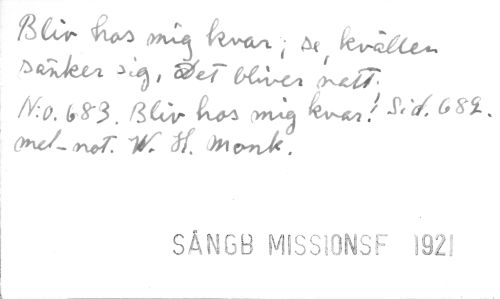 Bliv hos mig kvar; se, kvällen
sänker sig, Det bliver natt;
N:o. 683. Bliv hos mig kvar! Sid. 689.
mel-not. W. H. Monk.
SÅNGB MISSIONSF 1921